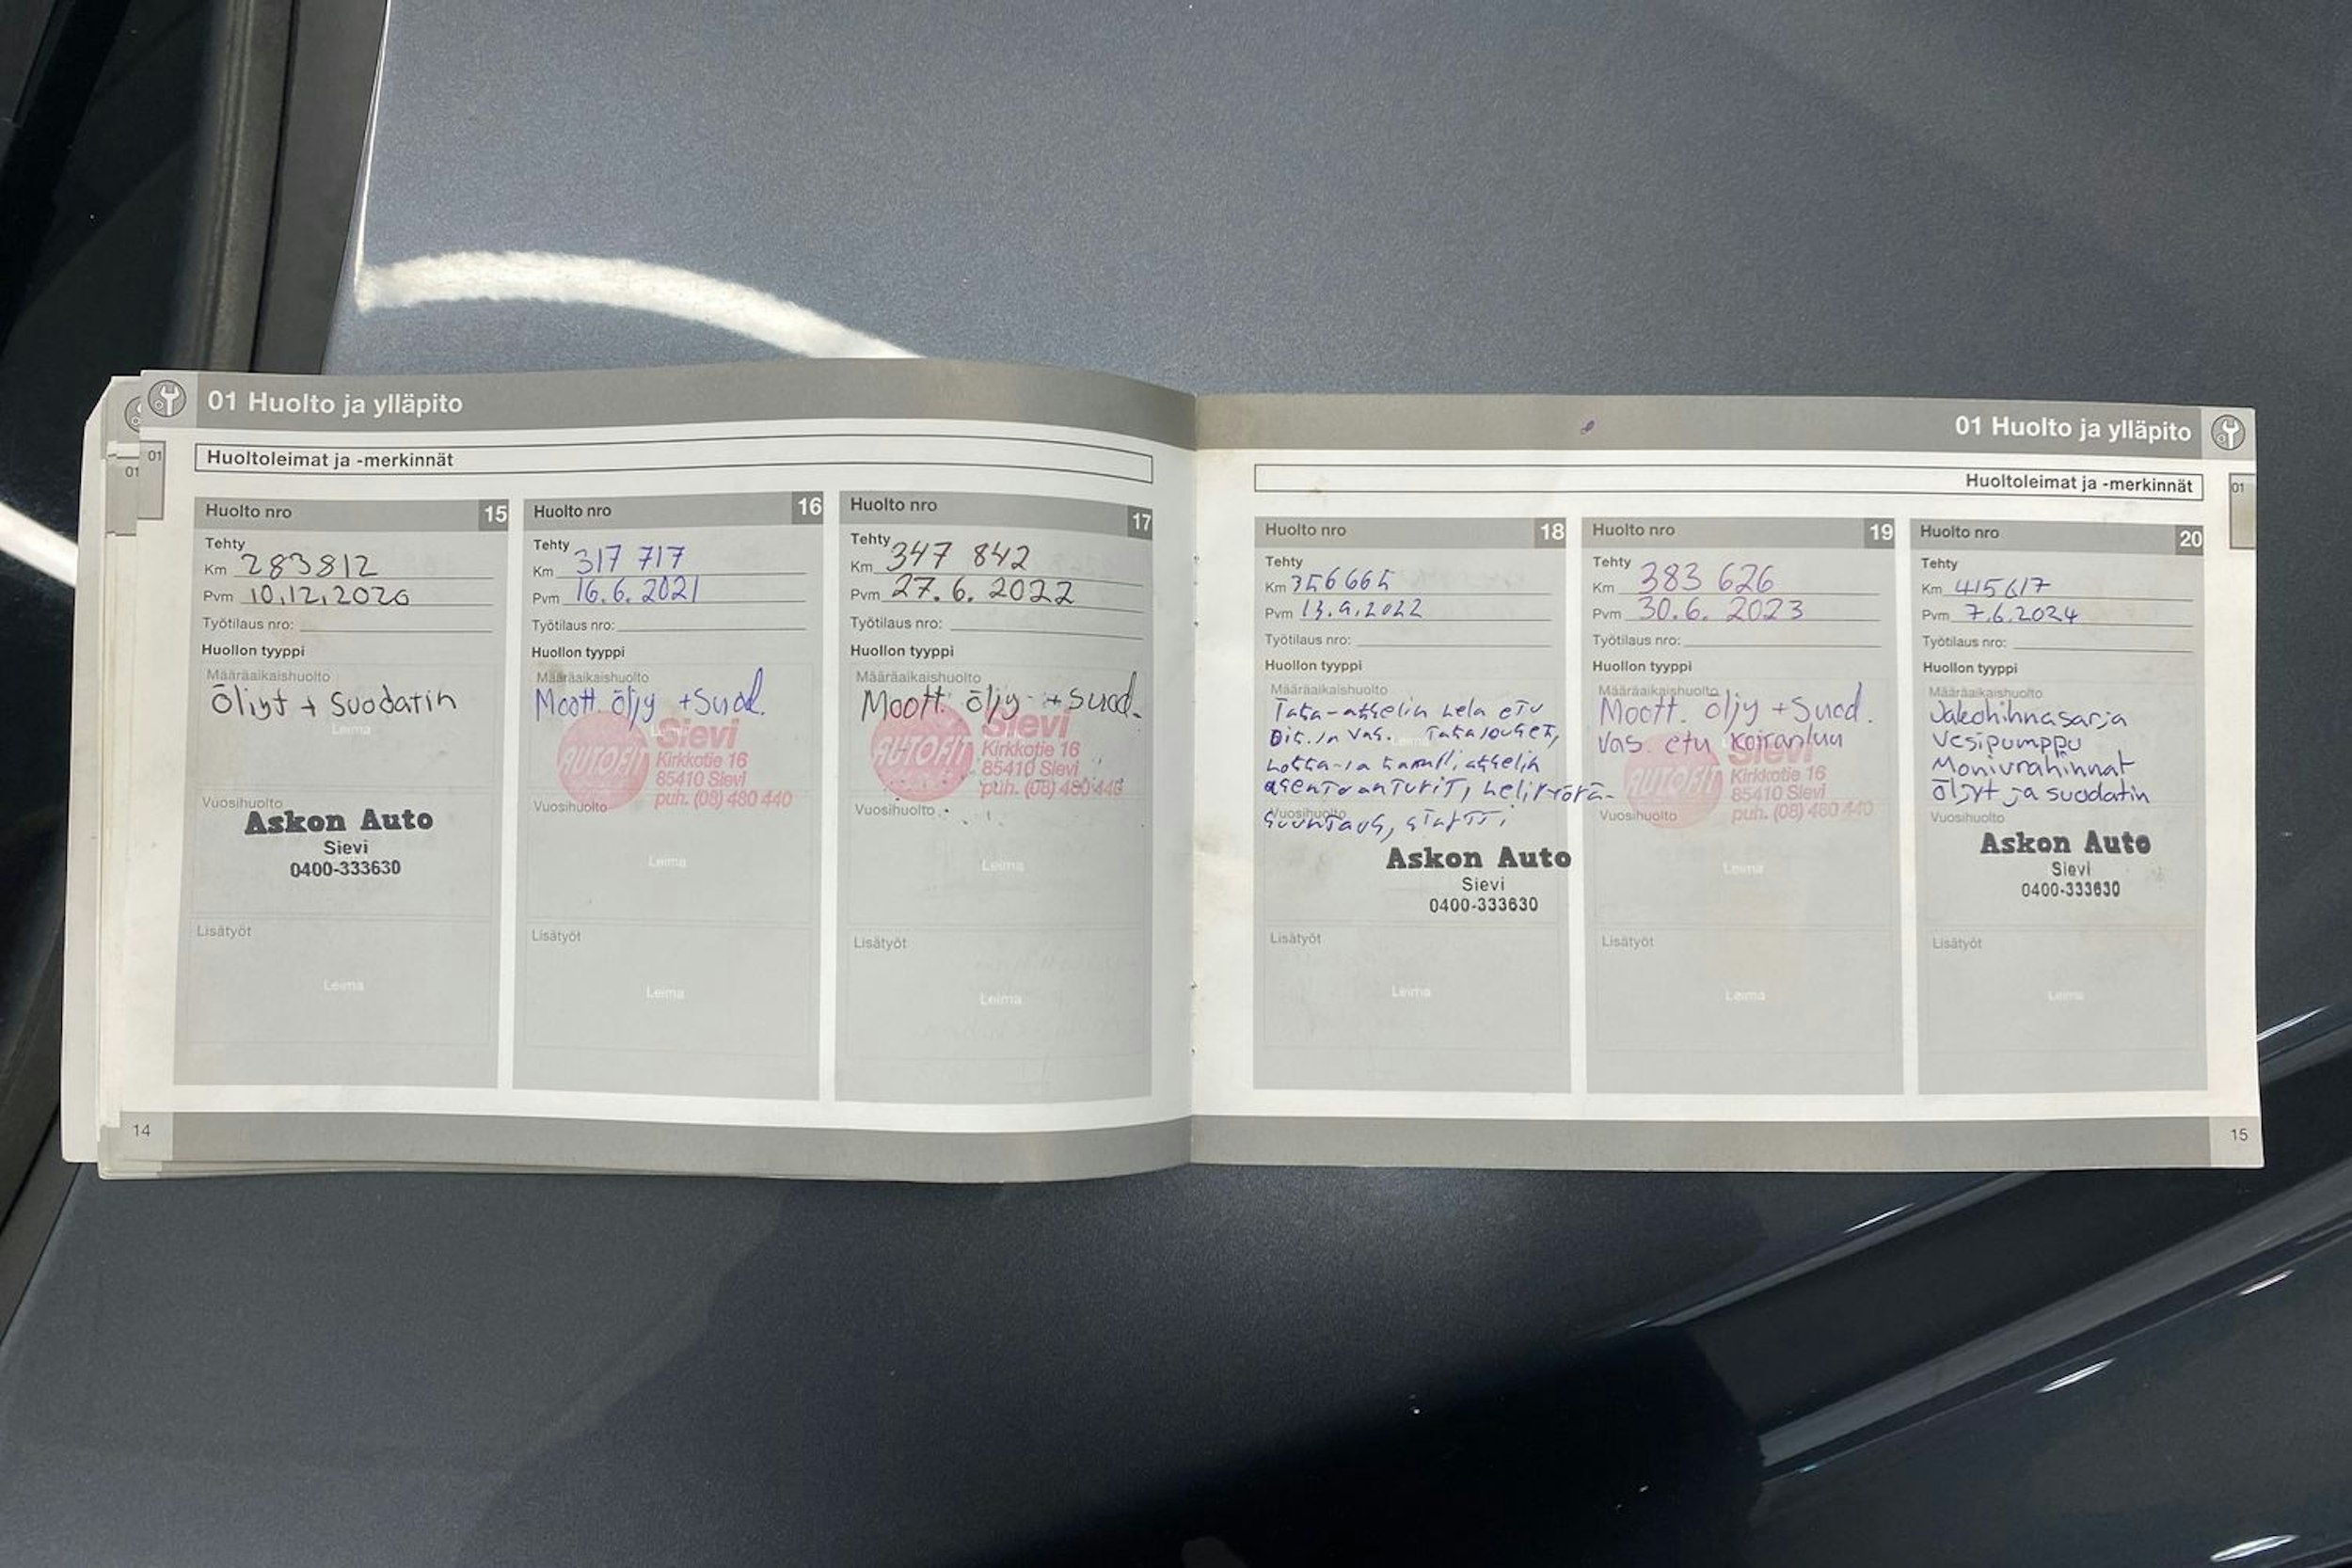 01 Huolto ja ylläpito
01
01
Huoltoleimat ja -merkinnät
Huolto nro 15
Tehty
Km 283812
Pvm 10.12.2020
Työtilaus nro:
Huollon tyyppi
Määräaikaishuolto
Öljyt + Suodatin
Leima
Vuosihuolto
Askon Auto
Sievi
0400-333630
Lisätyöt
Leima
Huolto nro 16
Tehty
Km 317 717
Pvm 16.6.2021
Työtilaus nro:
Huollon tyyppi
Määräaikaishuolto
Moott. öljy + Suod.
AUTOFIT
Sievi
Kirkkotie 16
85410 Sievi
puh. (08) 480 440
Vuosihuolto
Leima
Lisätyöt
Leima
Huolto nro 17
Tehty
Km 347 842
Pvm 27.6.2022
Työtilaus nro:
Huollon tyyppi
Määräaikaishuolto
Moott. öljy + Suod.
AUTOFIT
Sievi
Kirkkotie 16
85410 Sievi
puh. (08) 480 440
Vuosihuolto
Leima
Lisätyöt
Leima
14
01 Huolto ja ylläpito
Huoltoleimat ja -merkinnät
01
Huolto nro 18
Tehty
Km 356665
Pvm 13.9.2022
Työtilaus nro:
Huollon tyyppi
Määräaikaishuolto
Taka-akselin hela etu
oik. ja vas. Takajouset,
nokka-ja kampiakselin
asentoanturit, nelipyörä-
suuntaus,
Vuosihuolto
Askon Auto
Sievi
0400-333630
Lisätyöt
Leima
Huolto nro 19
Tehty
Km 383 626
Pvm 30.6.2023
Työtilaus nro:
Huollon tyyppi
Määräaikaishuolto
Moott. öljy + Suod.
Vas. etu koiranluu
AUTOFIT
Sievi
Kirkkotie 16
85410 Sievi
puh. (08) 480 440
Vuosihuolto
Leima
Lisätyöt
Leima
Huolto nro 20
Tehty
Km 415617
Pvm 7.6.2024
Työtilaus nro:
Huollon tyyppi
Määräaikaishuolto
Jakohihnasarja
Vesipumppu
Moniurahihnat
Öljyt ja suodatin
Vuosihuolto
Askon Auto
Sievi
0400-333630
Lisätyöt
Leima
15